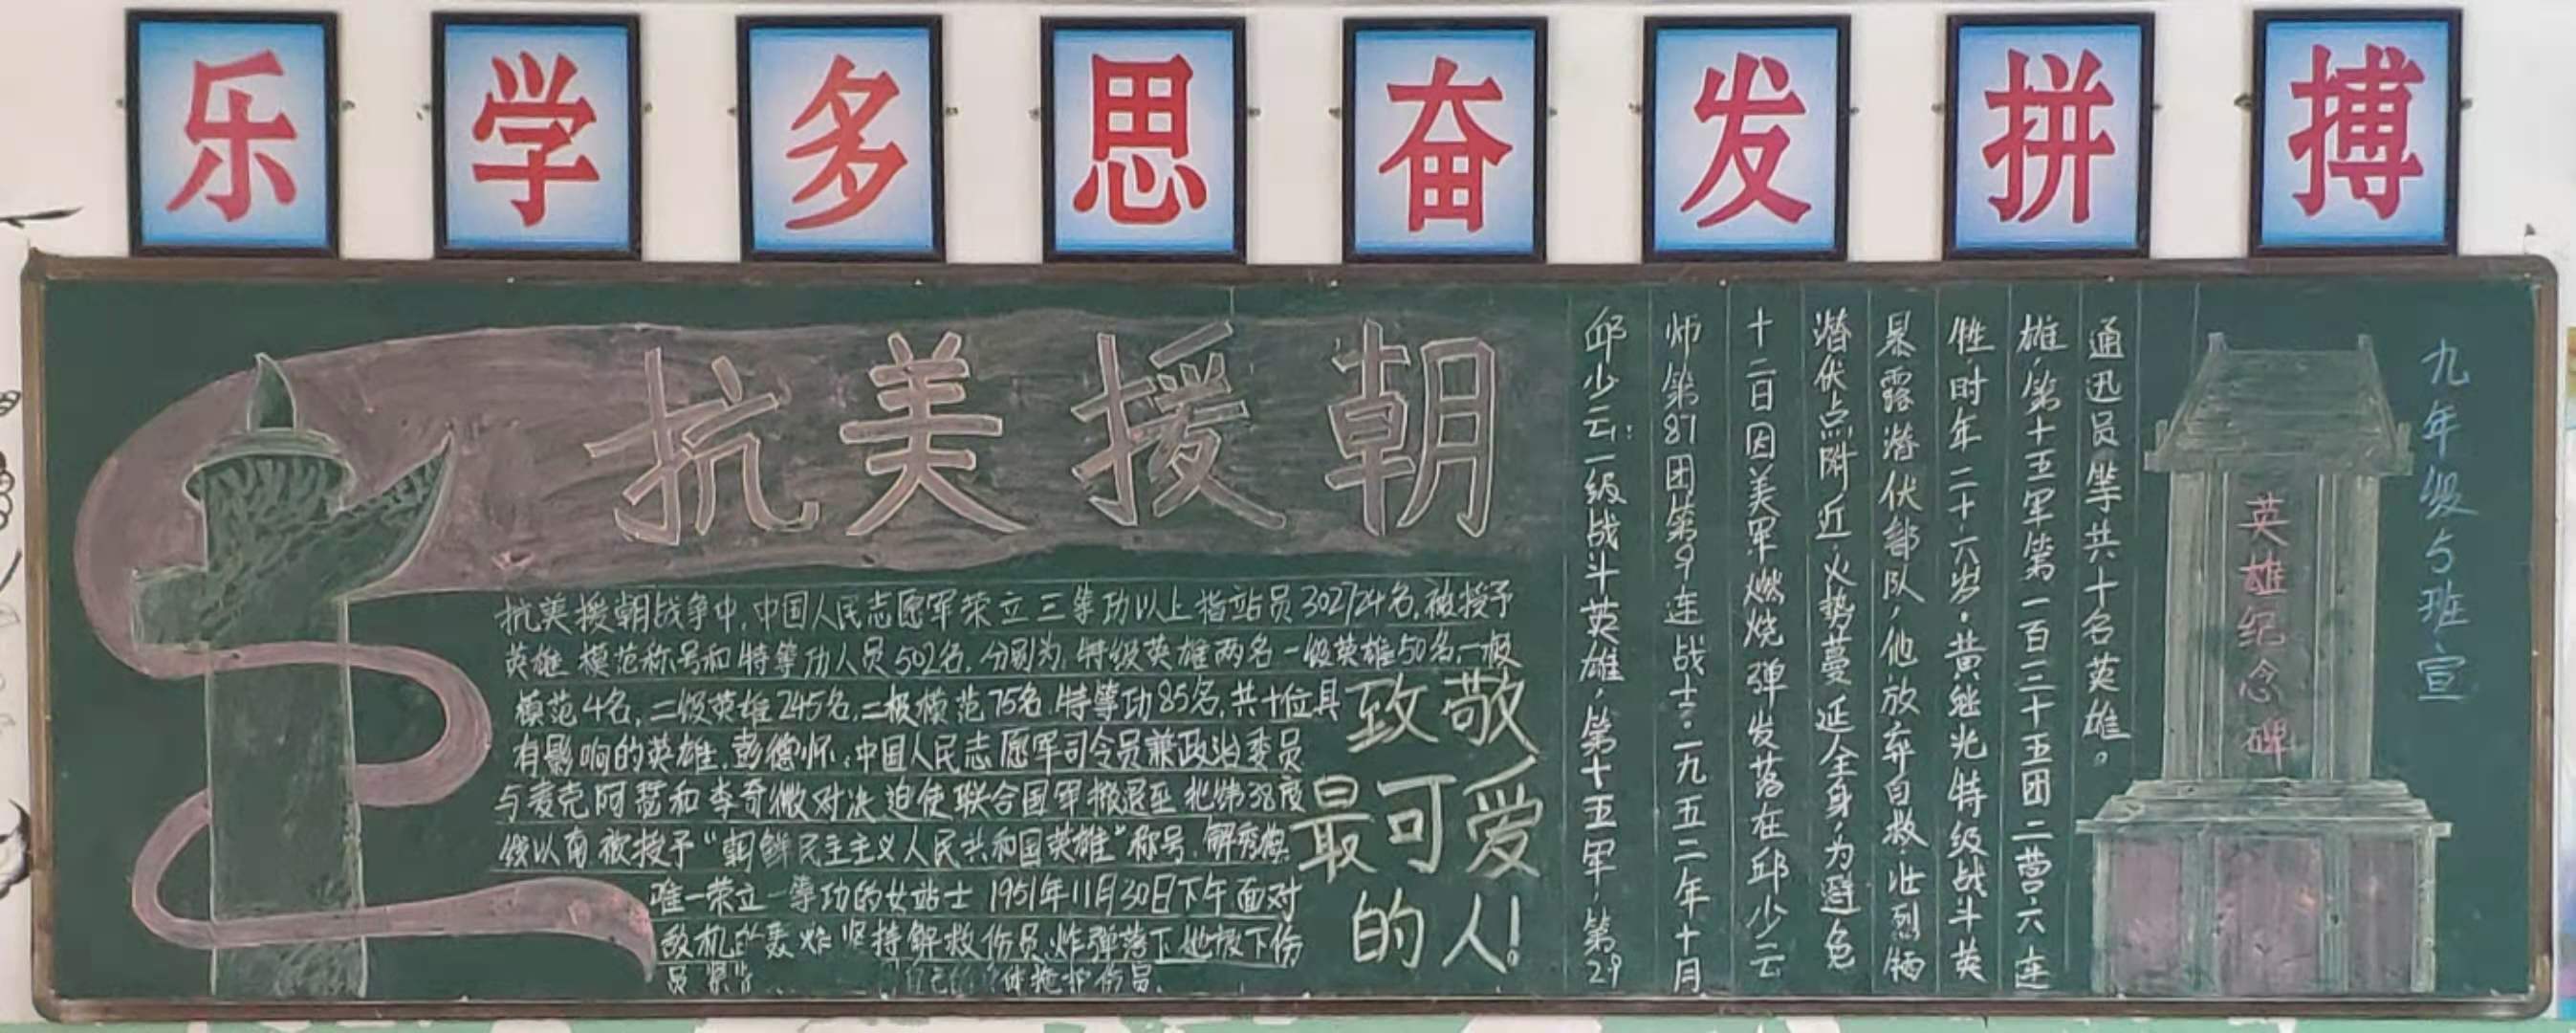 乐学多思奋发拼搏
抗美援朝
抗美援朝战争中,中国人民志愿军荣立三等功以上指站员302724名,被授予
英雄 模范称号和特等功人员502名,分别为,特级英雄两名 一级英雄50名,一极
模范4名,二级英雄245名,二极模范75名,特等功85名,共十位具
有影响的英雄,彭德怀:中国人民志愿军司令员兼政治委员
与麦克阿瑟和李奇微对决 迫使联合国军撤退至北纬38度
线以南 被授予“朝鲜民主主义人民共和国英雄”称号,解秀梅
唯一荣立一等功的女站士 1951年11月30日下午面对
敌机的轰炸坚持解救伤员,炸弹落下她极下伤
员 自己的 体掩护伤员.
致敬
最可爱
的人!
邱少云:一级战斗英雄,第十五军,第29
师第87团第9连战士·一九五二年十月
十二日因美军燃烧弹发落在邱少云
潜伏点附近,火势蔓延全身,为避免
暴露潜伏部队,他放弃自救,壮烈牺
牲,时年二十六岁·黄继光特级战斗英
雄,第十五军第一百三十五团二营六连
通迅员等共十名英雄。
英雄纪念碑
九年级5班宣